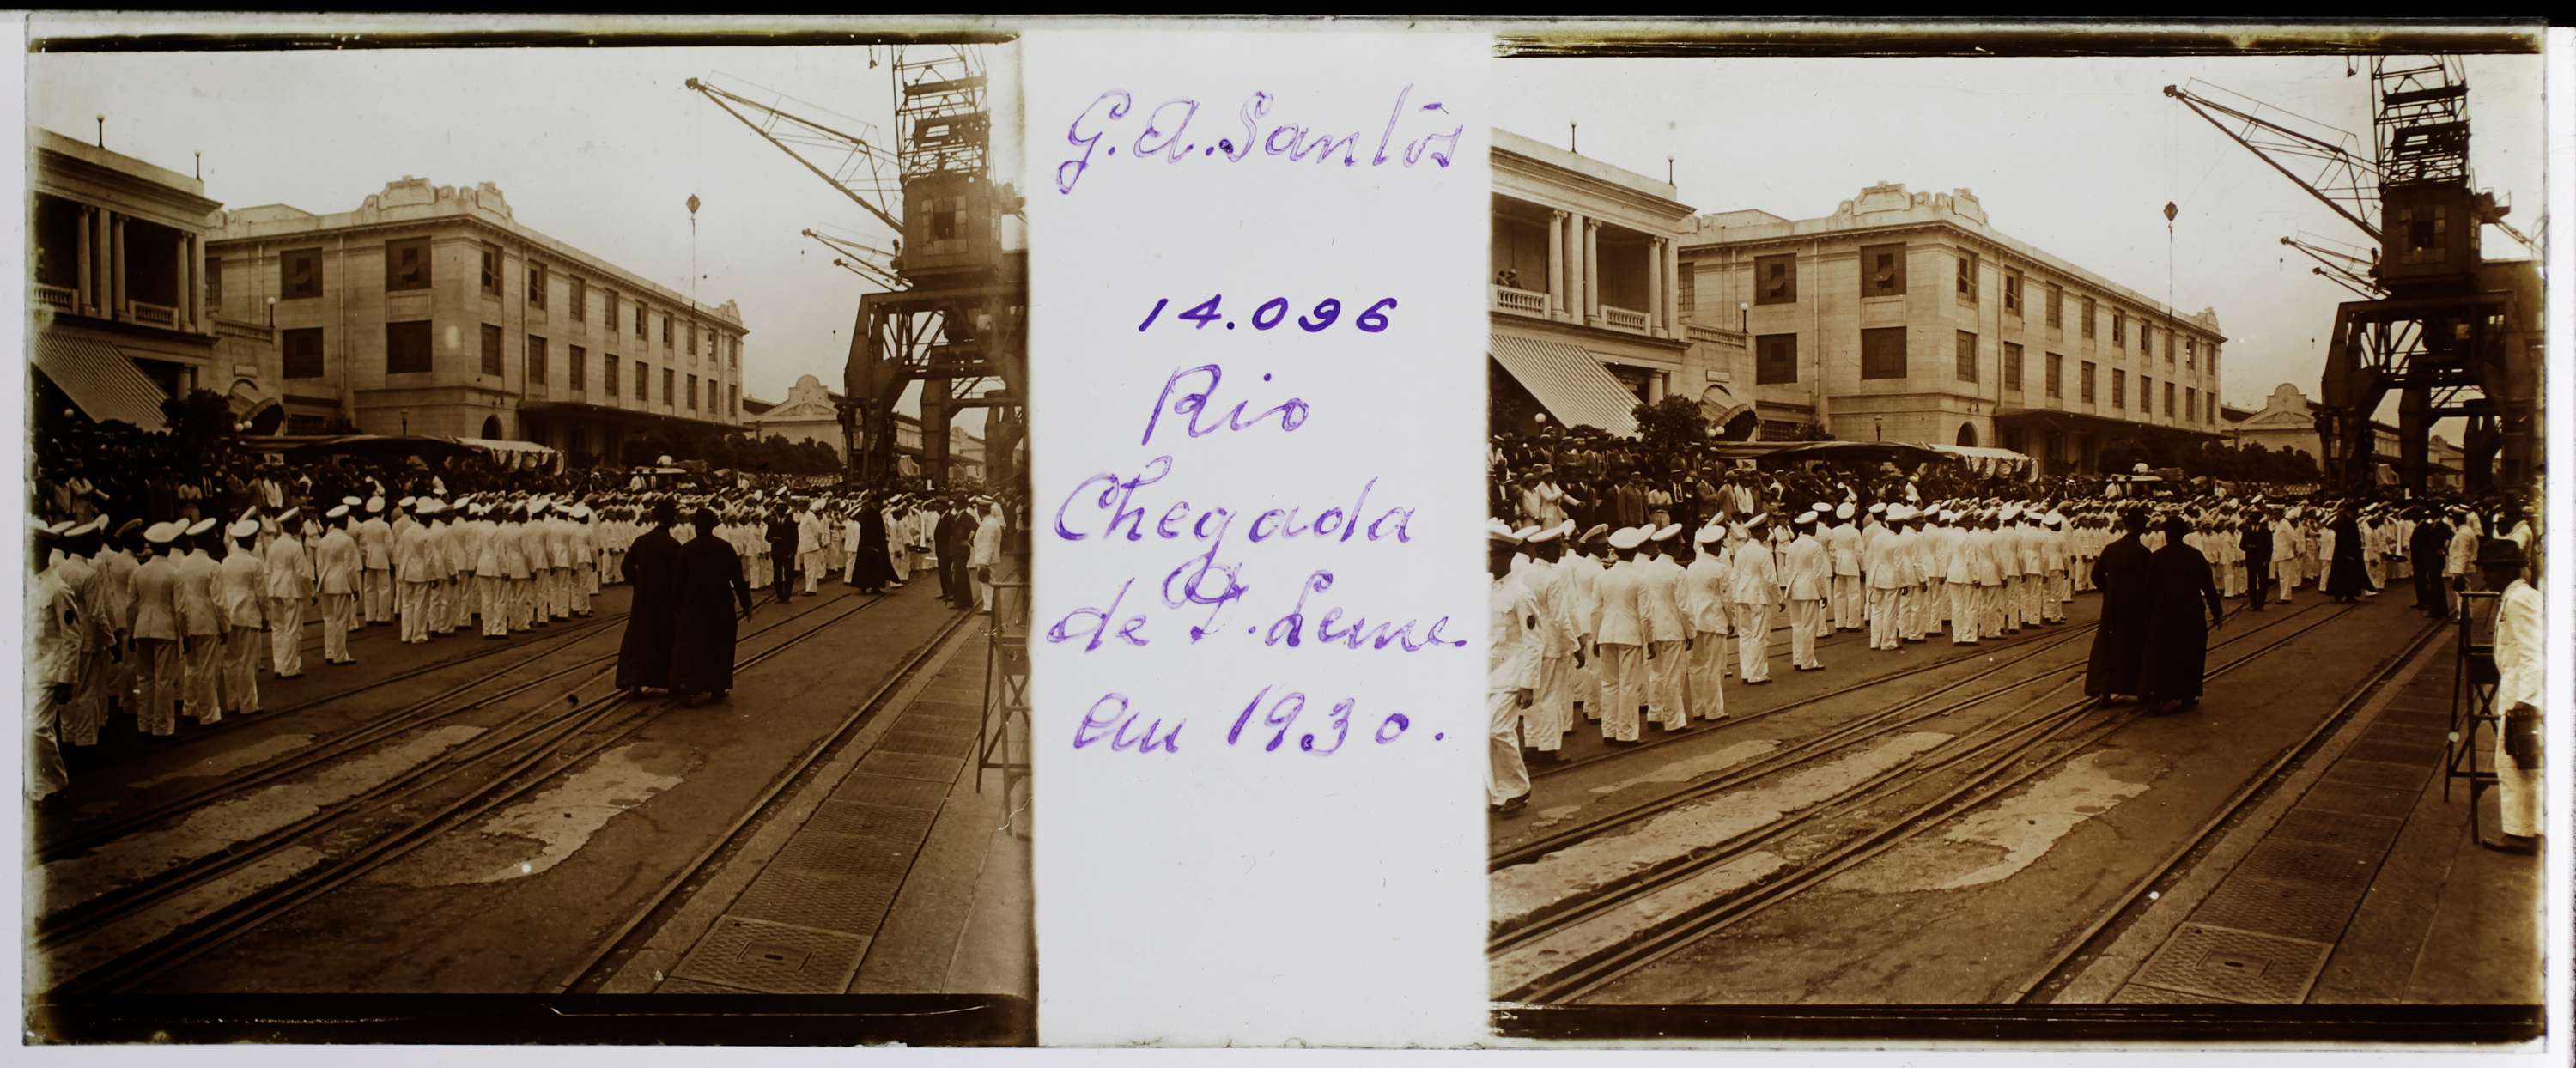 G. A. Santos
14.096
Rio
Chegada
de D. Leme
em 1930.